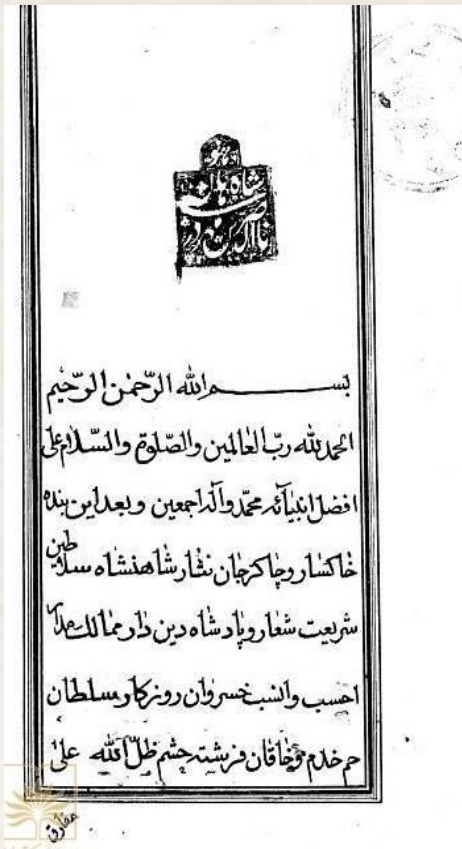 بســـــــم الله الرّحمٰن الرّحیم
الحمد لله ربّ العالمین والصّلوة والسّلام علی
افضل انبیآئه محمّد وآله اجمعین وبعد این بنده
خاکسار و چاکر جان نثار شاهنشاه سلاطین
شریعت شعار و پادشاه دین دار ممالک مدار
احسب وانسب خسروان روزکار سلطان
جم خدم وخاقان فرشته حشم ظلّ الله علیٰ
مفارق